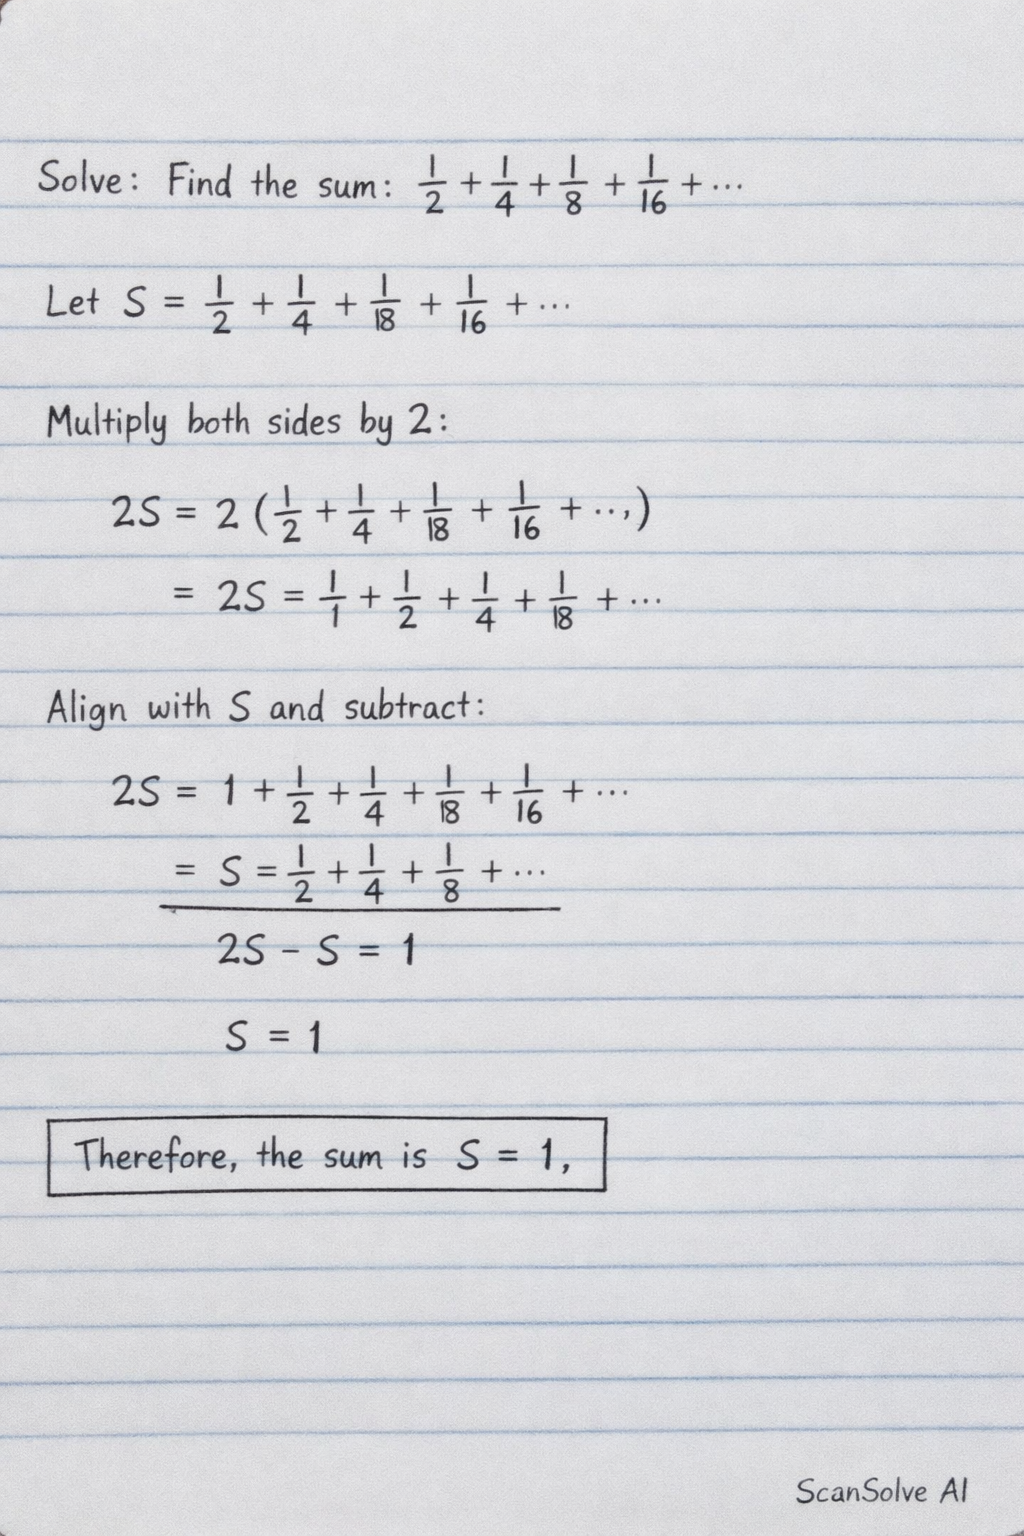 Solve: Find the sum: 1/2 + 1/4 + 1/8 + 1/16 + ...
Let S = 1/2 + 1/4 + 1/18 + 1/16 + ...
Multiply both sides by 2:
2S = 2 (1/2 + 1/4 + 1/18 + 1/16 + ..,)
= 2S = 1/1 + 1/2 + 1/4 + 1/18 + ...
Align with S and subtract:
2S = 1 + 1/2 + 1/4 + 1/18 + 1/16 + ...
= S = 1/2 + 1/4 + 1/8 + ...
2S - S = 1
S = 1
Therefore, the sum is S = 1,
ScanSolve AI